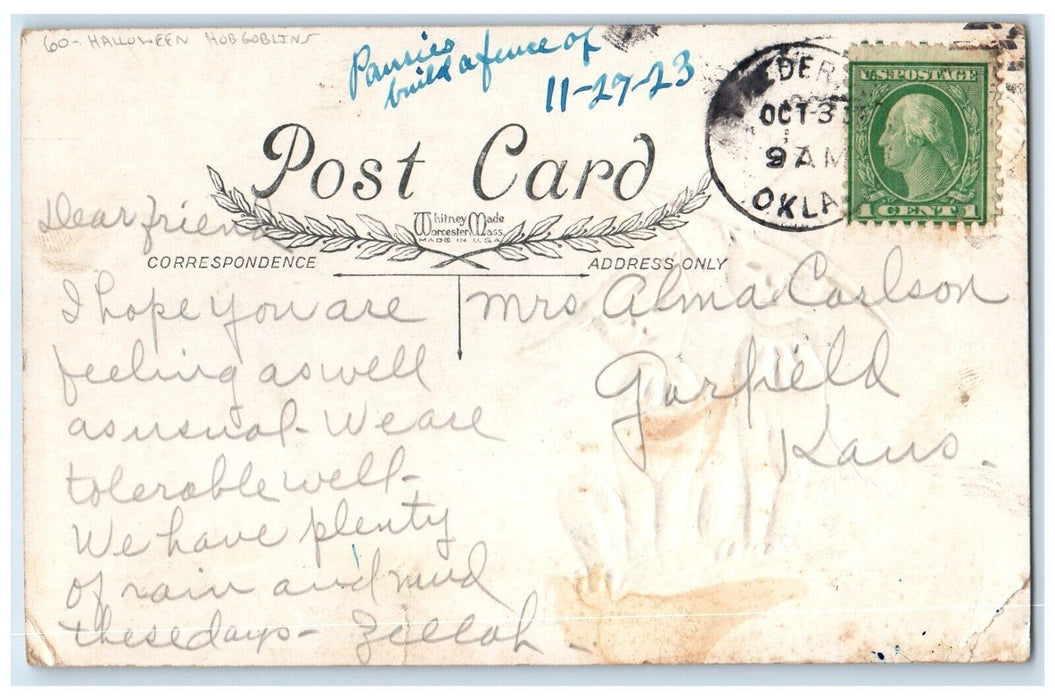 60- HALLOWEEN HOBGOBLINS
Pansies
build a fence of
11-27-23
DER
OCT 3
9 AM
OKLA
U.S. POSTAGE
1 CENT 1
Post Card
Whitney Made
Worcester, Mass.
MADE IN U.S.A.
CORRESPONDENCE
ADDRESS ONLY
Dear friend
I hope you are
feeling as well
as usual - We are
tolerable well -
We have plenty
of rain and mud
these days - Zillah
Mrs Alma Carlson
Garfield
Kans.